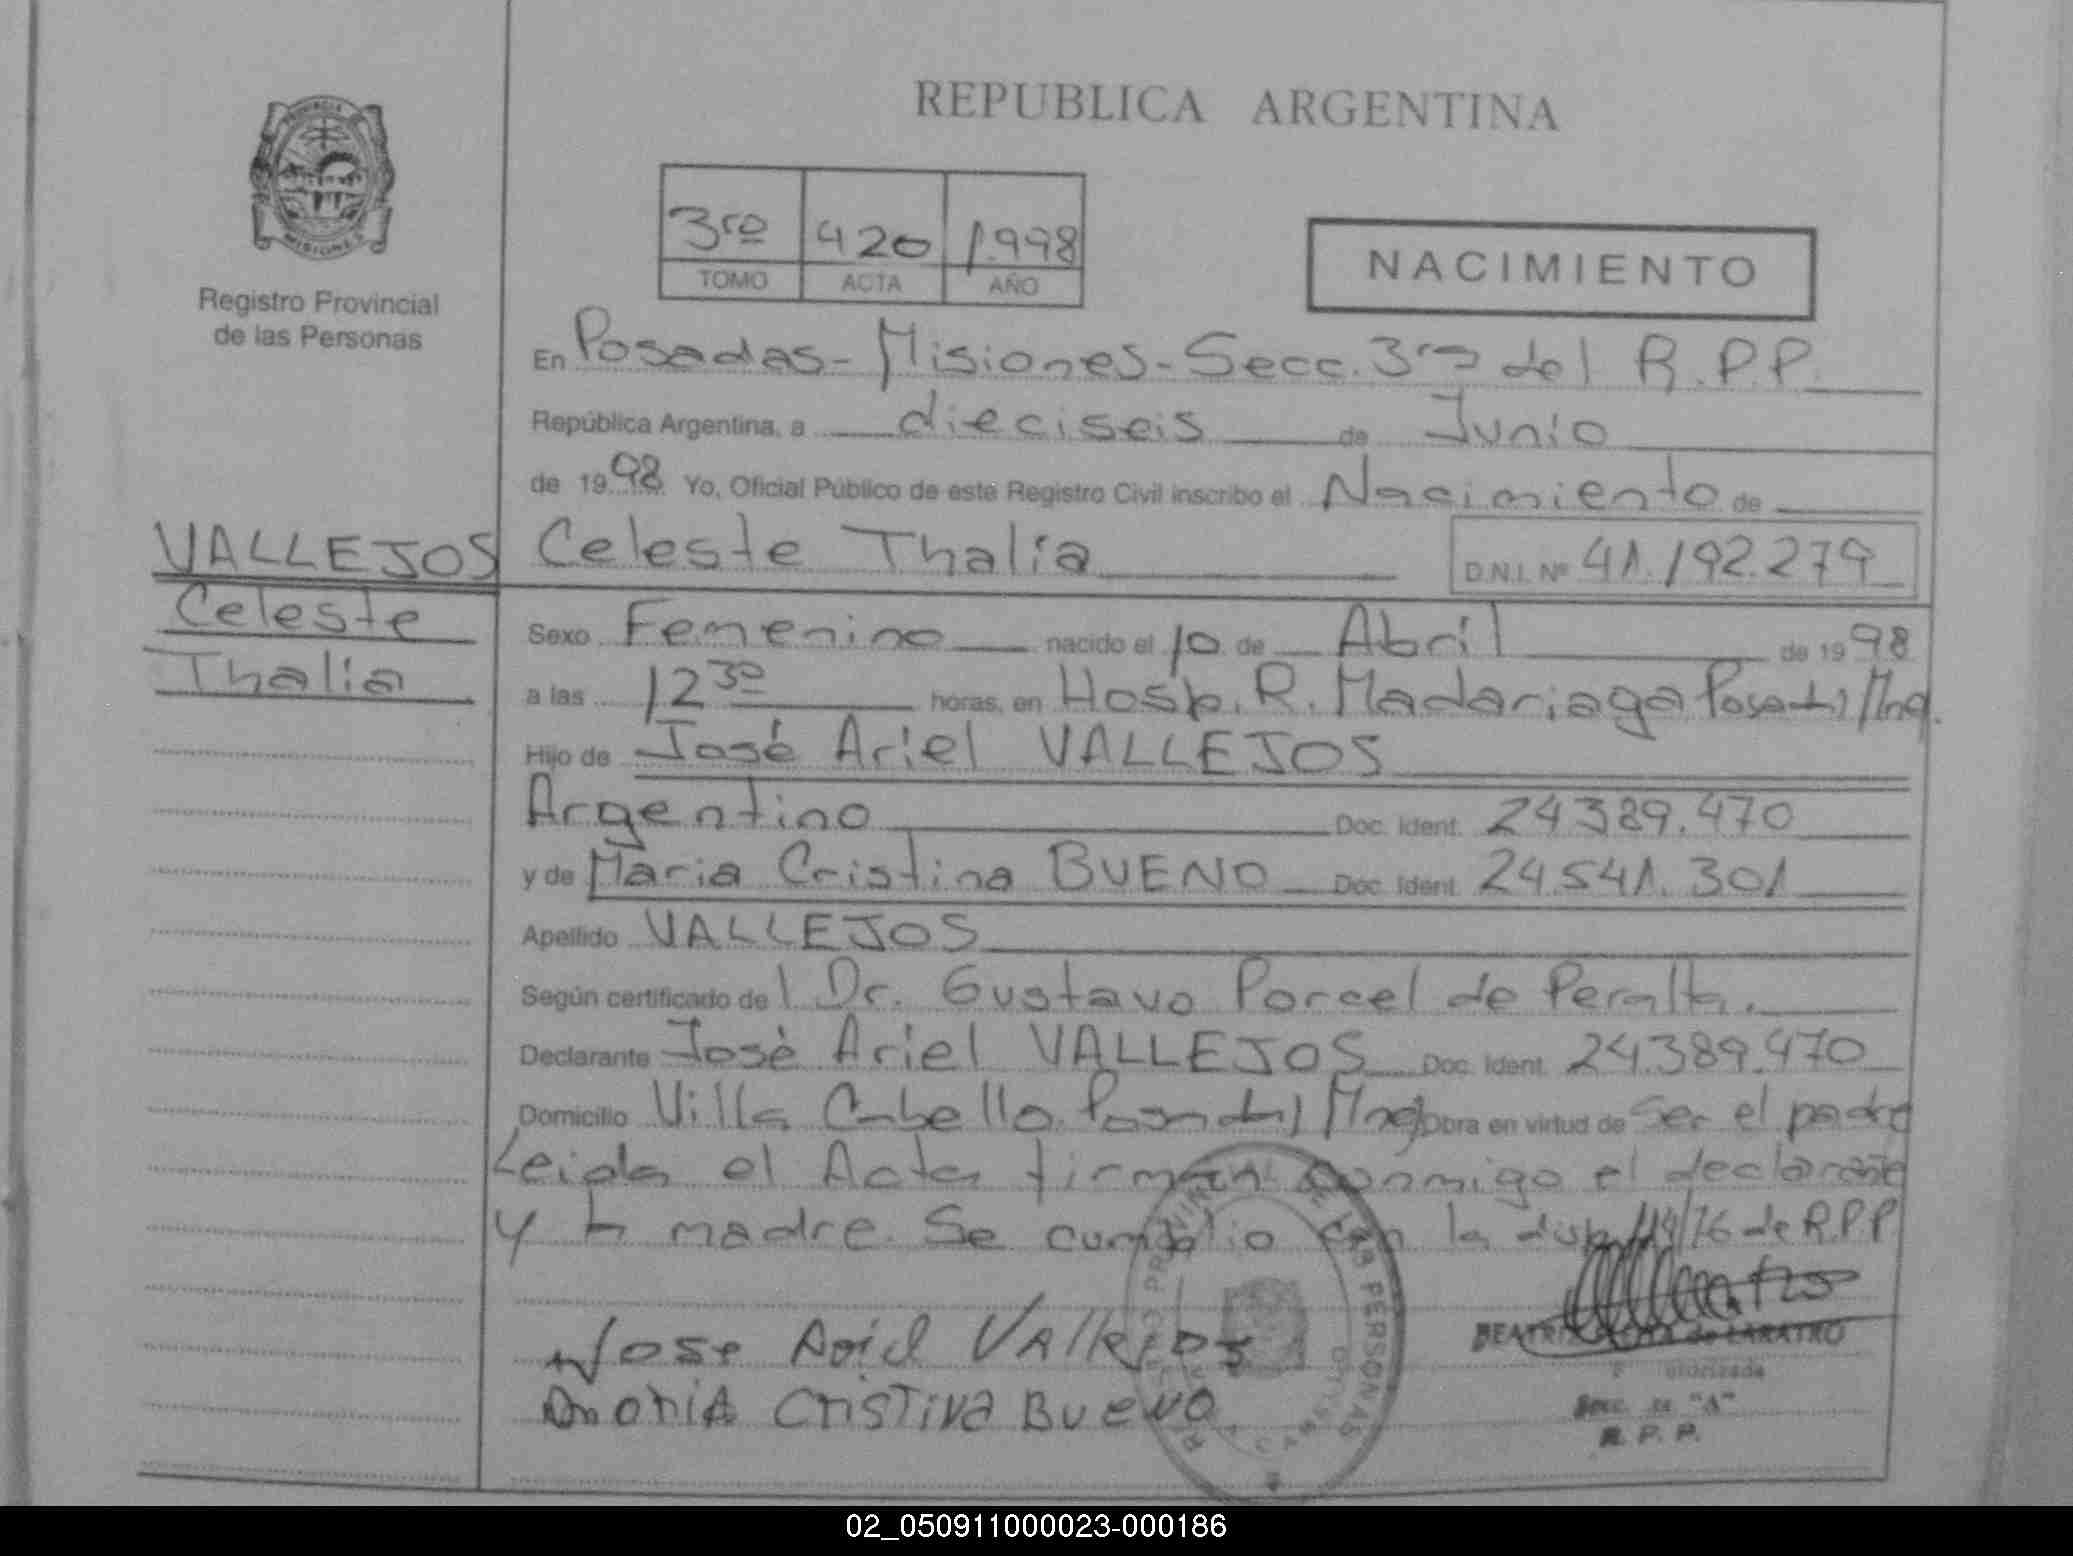 REPUBLICA ARGENTINA
MISIONES
Registro Provincial
de las Personas
3ro 420 1.998
TOMO ACTA AÑO
NACIMIENTO
En Posadas - Misiones - Secc. 3ra del R.P.P.
República Argentina, a dieciseis de Junio
de 1998 Yo, Oficial Público de este Registro Civil inscribo el Nacimiento de
VALLEJOS Celeste Thalía D.N.I. Nº 41.192.279
Celeste
Thalía
Sexo Femenino nacido el 10 de Abril de 1998
a las 12 30 horas, en Hosp. R. Madariaga Posadas Mnes.
Hijo de José Ariel VALLEJOS
Argentino Doc. Ident. 24389.470
y de Maria Cristina BUENO Doc. Ident. 24.541.301
Apellido VALLEJOS
Según certificado del Dr. Gustavo Porcel de Peralta.
Declarante José Ariel VALLEJOS Doc. Ident. 24.389.470
Domicilio Villa Cabello Posadas Mnes Obra en virtud de Ser el padre
Leida el Acta firman conmigo el declarante
y la madre. Se cumplio con la disp 114/76 de R.P.P
Jose Ariel Vallejos
Maria CristiNa BueNo
BEATRIZ de LARATRO
Secc. "A"
R. P. P.
DE LAS PERSONAS
02_050911000023-000186